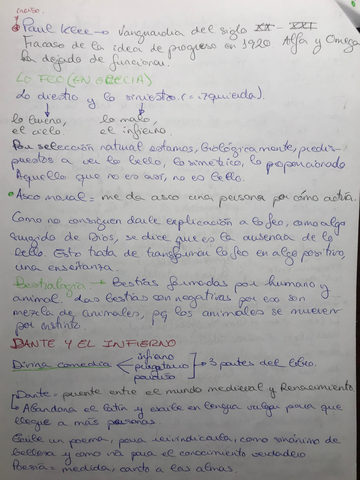 Paul Klee → Vanguardia del siglo XX - XXI
Fracaso de la idea de progreso en 1920 Alfa y Omega
ha dejado de funcionar.
LO FEO (EN GRECIA)
Lo diestro y lo siniestro. (= izquierda).
lo bueno, lo malo,
el cielo el infierno.
Por selección natural estamos, biológicamente, predis-
puestos a ver lo bello, lo simétrico, lo proporcionado
Aquello que no es así, no es bello.
Asco moral = me da asco una persona por cómo actúa.
Como no consiguen darle explicación a lo feo, como algo
surgido de Dios, se dice que es la ausencia de lo
bello. Esto trata de transformar lo feo en algo positivo,
una enseñanza.
Bestialogía → Bestias formadas por humano y
animal. Las bestias son negativas por eso son
mezcla de animales, pq los animales se mueven
por instinto.
DANTE Y EL INFIERNO
Divina comedia infierno purgatorio paraíso → 3 partes del libro.
Dante = puente entre el mundo medieval y Renacimiento
Abandona el latín y escribe en lengua vulgar para que
llegue a más personas
Escribe un poema, para reivindicarlo, como sinónimo de
belleza y como vía para el conocimiento verdadero
Poesía = medida, canto a las almas.